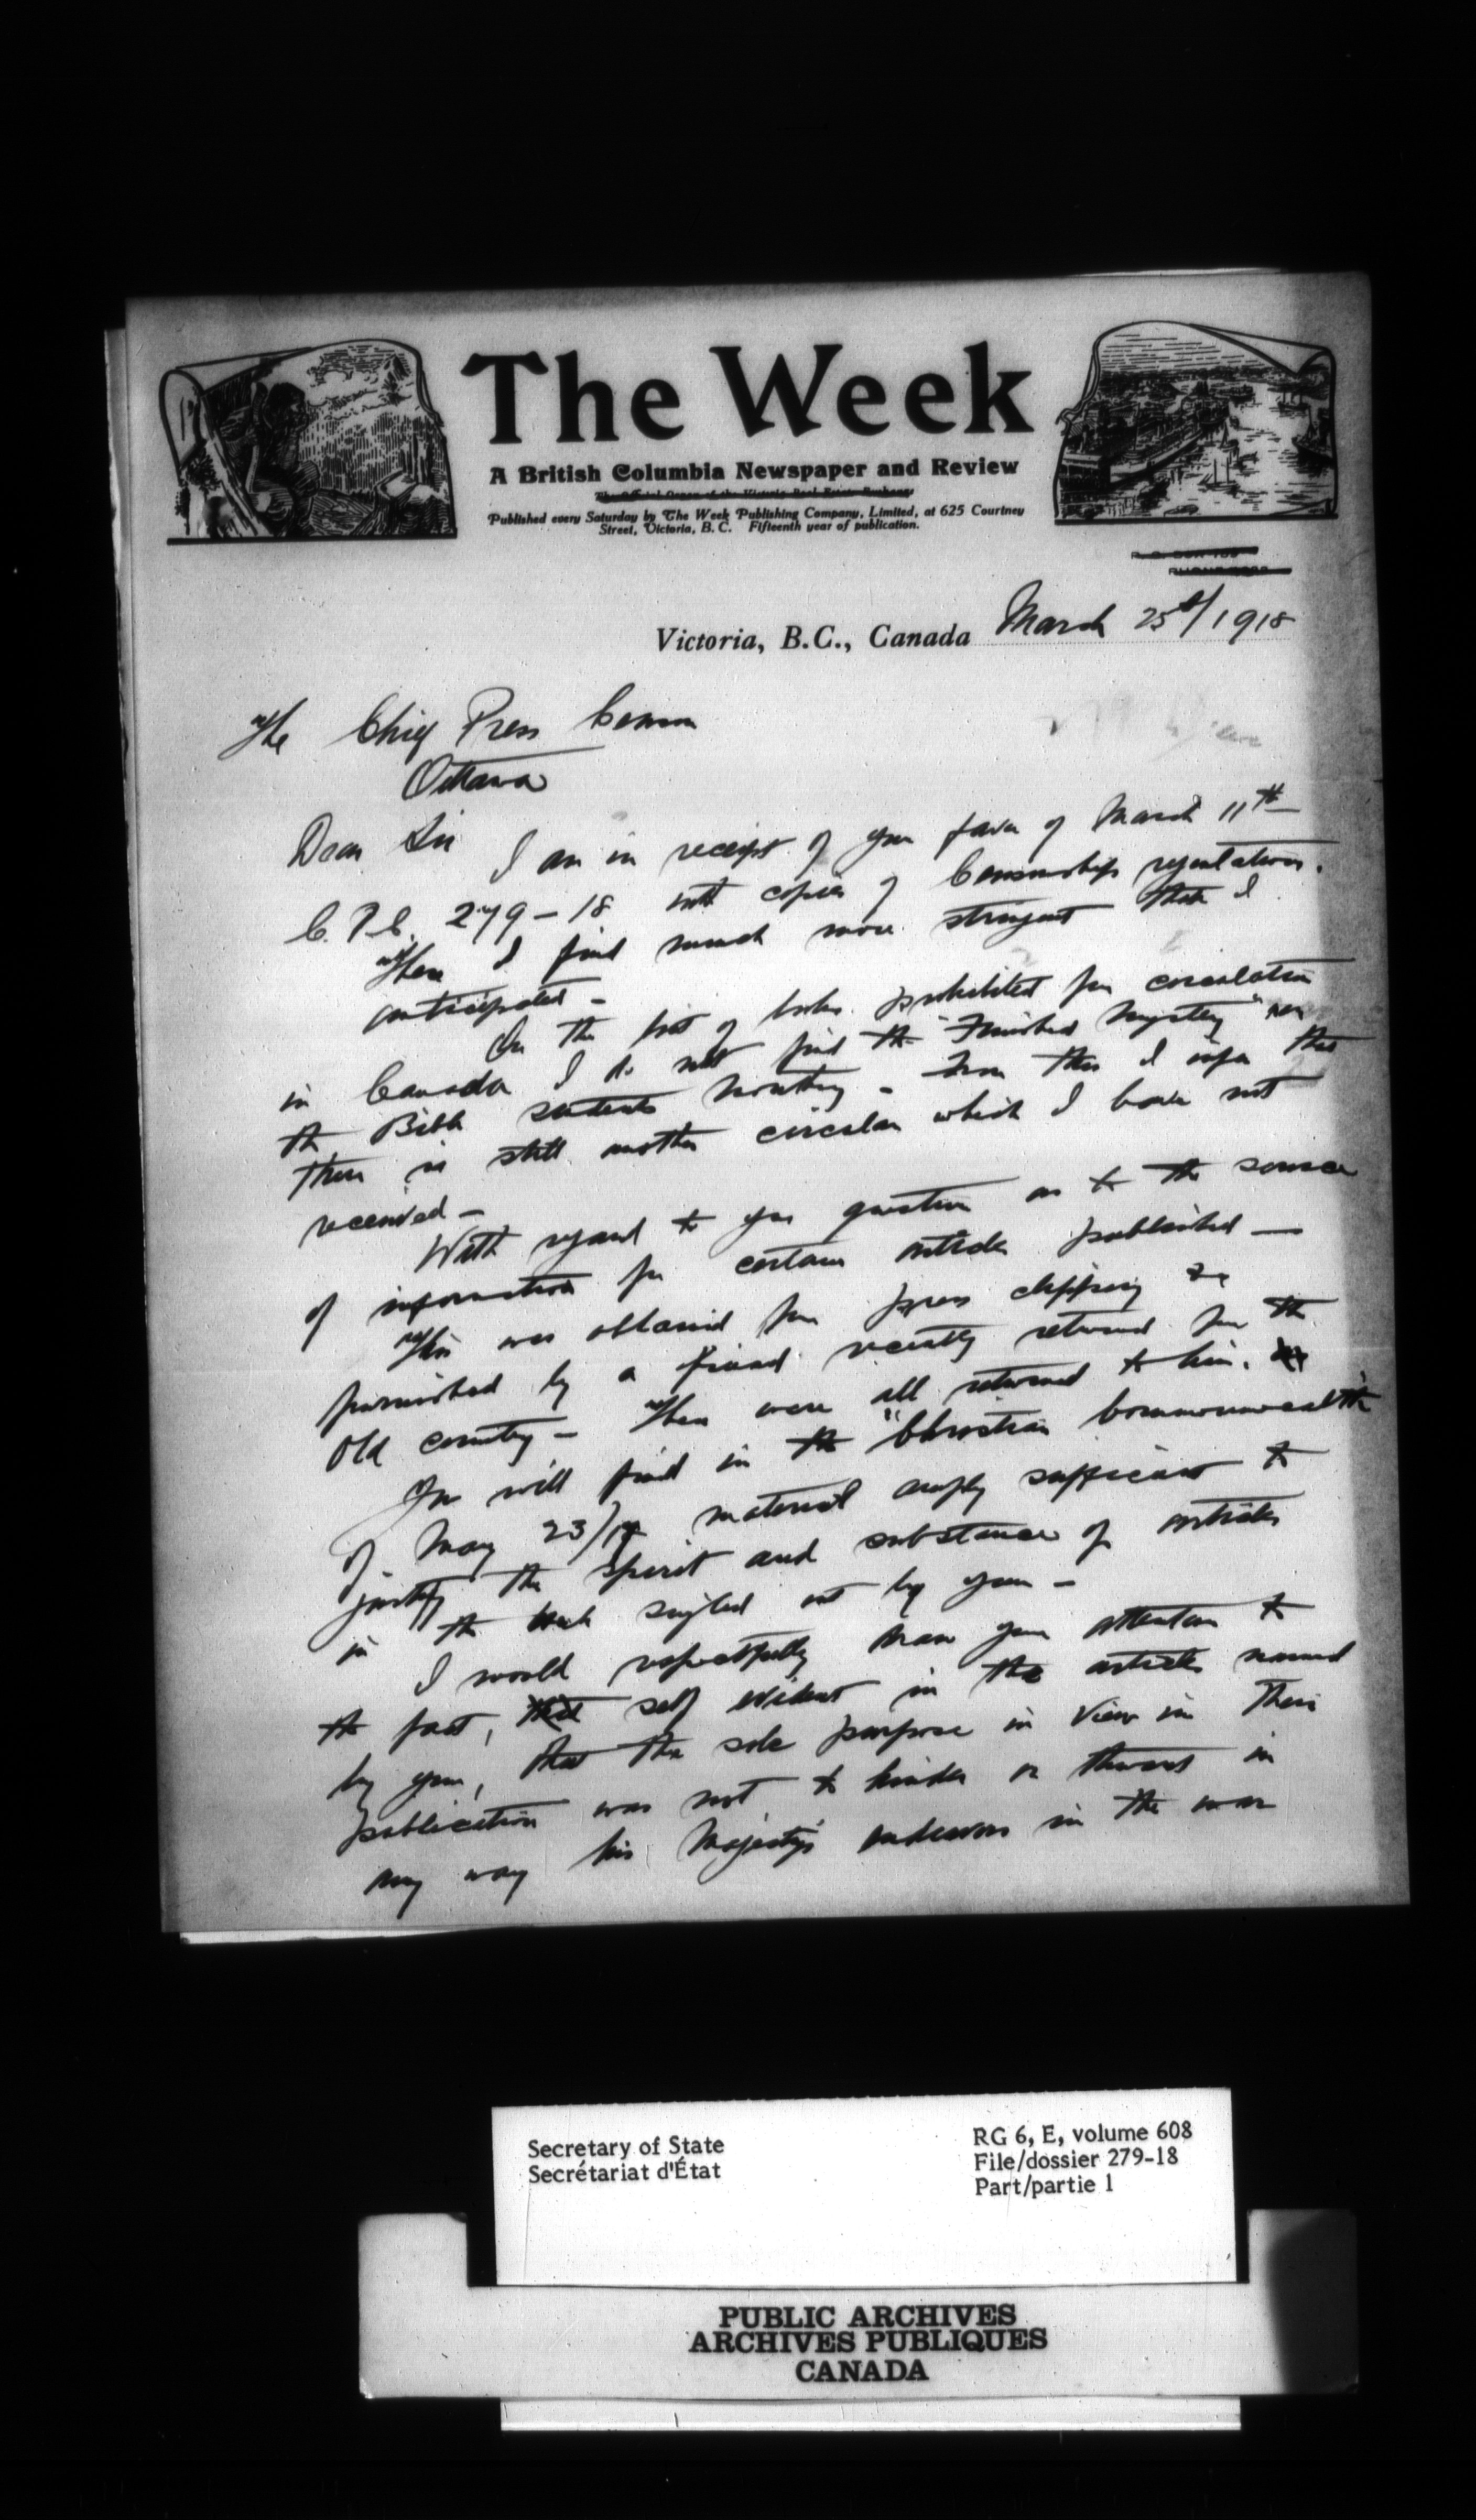 The Week
A British Columbia Newspaper and Review
The Official Organ of the Victoria Real Estate Exchange
Published every Saturday by The Week Publishing Company, Limited, at 625 Courtney
Street, Victoria, B.C. Fifteenth year of publication.
Victoria, B.C., Canada March 25th/1918
The Chief Press Censor
Ottawa
Dear Sir I am in receipt of your favor of March 11th
C.P.C. 279-18 with copies of Censorship regulations.
These I find much more stringent than I
anticipated -
On the list of books prohibited from circulation
in Canada I do not find the "Finished Mystery" nor
the Bible Students Monthly - From this I infer that
there is still another circular which I have not
received -
With regard to your question as to the source
of information for certain articles published -
This was obtained from press clipping &c
furnished by a friend recently returned from the
Old country - These were all returned to him.
You will find in the "Christian Commonwealth"
of May 23/17 material amply sufficient to
justify the spirit and substance of articles
in the Week singled out by you -
I would respectfully draw your attention to
the fact, self evident in the articles named
by you, that the sole purpose in view in their
publication was not to hinder or thwart in
any way his Majesty's endeavors in the war
Secretary of State
Secrétariat d'État
RG 6, E, volume 608
File/dossier 279-18
Part/partie 1
PUBLIC ARCHIVES
ARCHIVES PUBLIQUES
CANADA